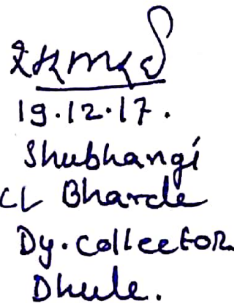 19.12.17.
Shubhangi
Bharde
Dy. Collector
Dhule.